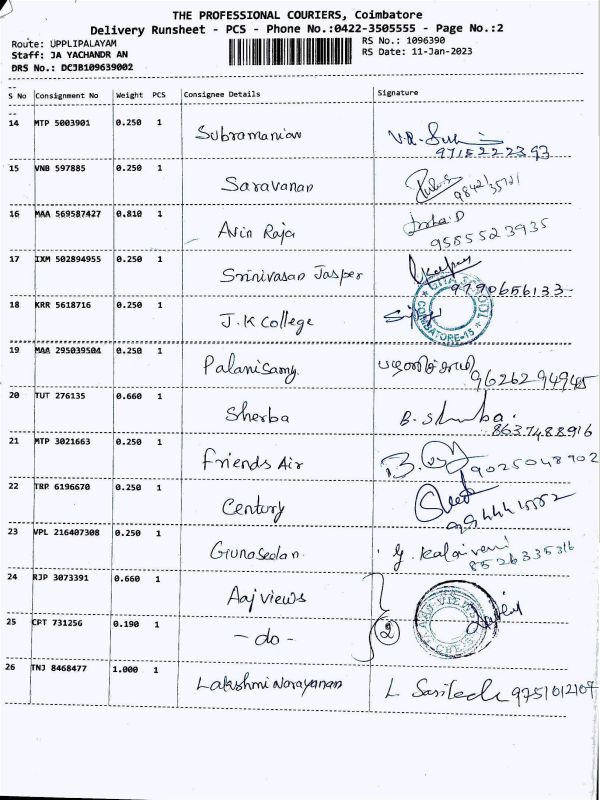 THE PROFESSIONAL COURIERS, Coimbatore
Delivery Runsheet - PCS - Phone No.:0422-3505555 - Page No.:2
Route: UPPLIPALAYAM
RS No.: 1096390
Staff: JA YACHANDR AN
RS Date: 11-Jan-2023
DRS No.: DCJB109639002
S No Consignment No Weight PCS Consignee Details Signature
14 MTP 5003901 0.250 1 Subramanian
9715222393
15 VNB 597885 0.250 1 Saravanan
16 MAA 569587427 0.810 1 Arin Raja
9585523935
17 IXM 502894955 0.250 1 Srinivasan Jasper
9790656133
18 KRR 5618716 0.250 1 J.K College
COIMBATORE-15
19 MAA 295039504 0.250 1 Palanisamy பழனிச்சாமி
9626294945
20 TUT 276135 0.660 1 Sherba
8637488916
21 MTP 3021663 0.250 1 Friends Air 9025048902
22 TRP 6196670 0.250 1 Century
23 VPL 216407308 0.250 1 Gunaseelan Y. Kalaivani
8526335316
24 RJP 3073391 0.660 1 Aaj views
25 CPT 731256 0.190 1 - do - 2
26 TNJ 8468477 1.000 1 Lakshmi Narayanan L 9751012107